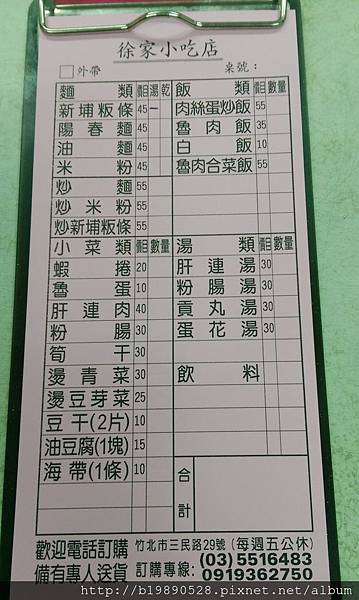 徐家小吃店
外帶 桌號：
麵類 價目 湯 乾 飯類 價目 數量
新埔粄條 45 肉絲蛋炒飯 55
陽春麵 45 魯肉飯 35
油麵 45 白飯 10
米粉 45 魯肉合菜飯 55
炒麵 55
炒米粉 55
炒新埔粄條 55
小菜類 價目 數量 湯類 價目 數量
蝦捲 20 肝連湯 30
魯蛋 10 粉腸湯 30
肝連肉 40 貢丸湯 30
粉腸 30 蛋花湯 30
筍干 30
燙青菜 30 飲料
燙豆芽菜 25
豆干(2片) 10
油豆腐(1塊) 15
海帶(1條) 10
合計
歡迎電話訂購 竹北市三民路29號 (每週五公休)
備有專人送貨 訂購專線: (03)5516483
0919362750
http://b19890528.pixnet.net/album